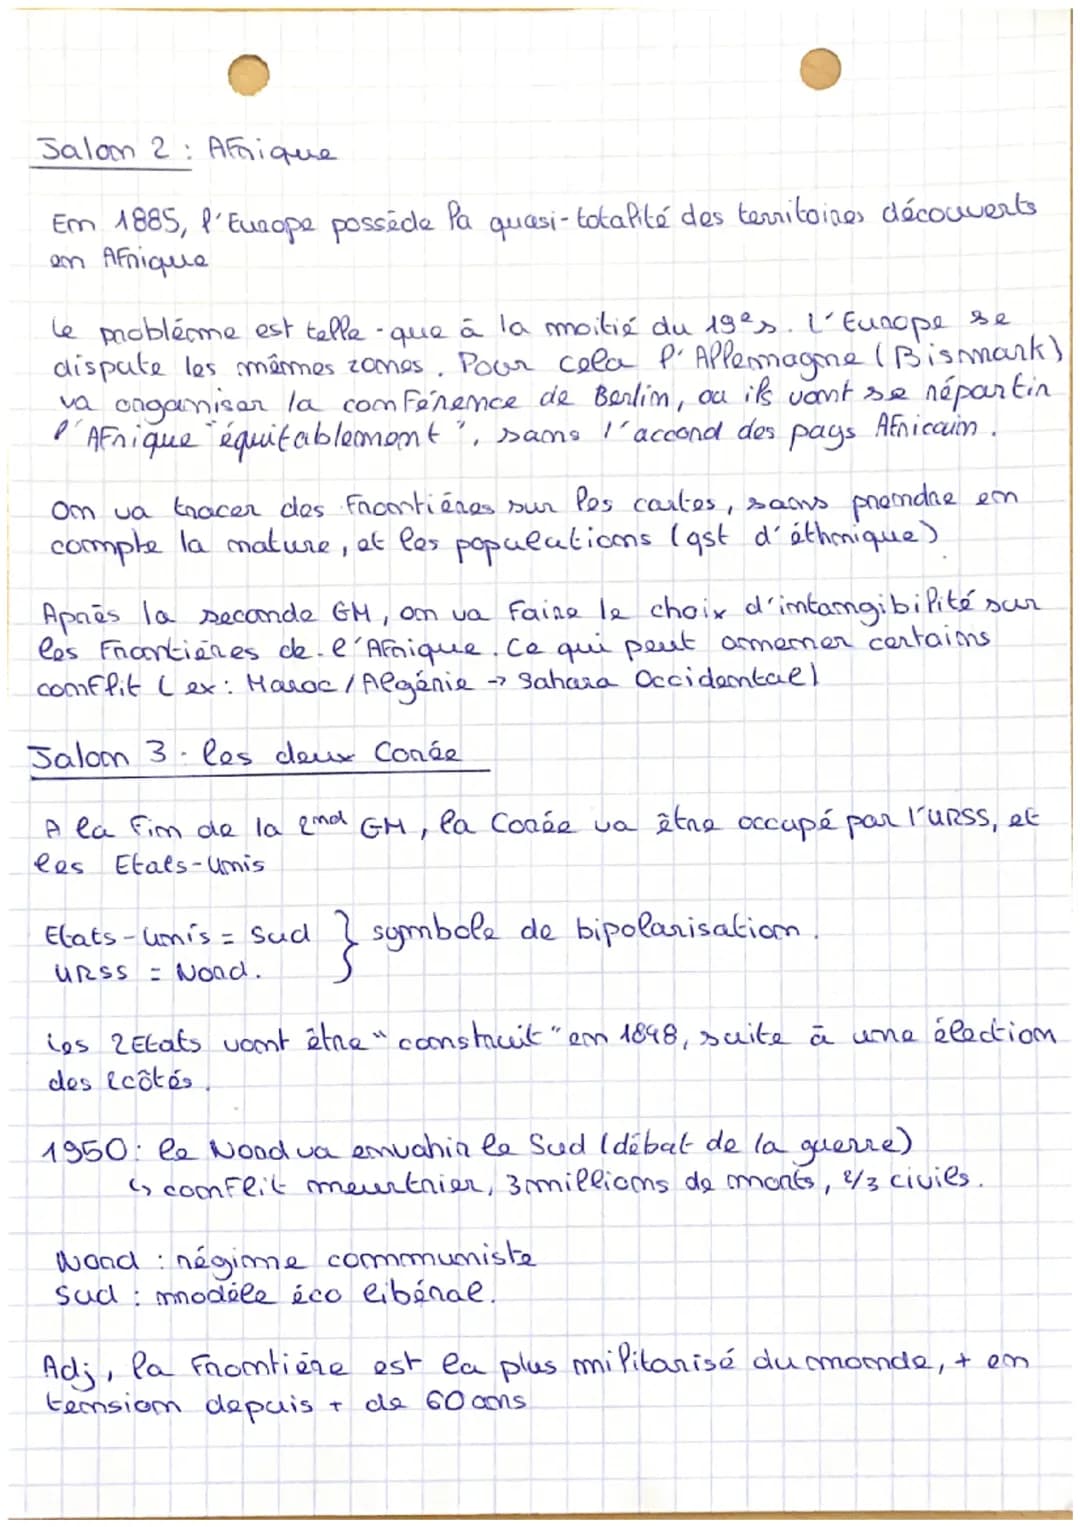 Jalon 2 : Afrique
En 1885, l'Europe possède la quasi-totalité des territoires découverts
en Afrique
Le problème est telle que à la moitié du 19e s. L'Europe se
dispute les mêmes zones. Pour cela l'Allemagne (Bismark)
va organiser la conférence de Berlin, ou ils vont se répartir
l'Afrique "équitablement", sans l'accord des pays Africain.
On va tracer des frontières sur les cartes, sans prendre en
compte la nature, et les populations (qst d'éthnique)
Après la seconde GM, on va faire le choix d'intangibilité sur
les frontières de l'Afrique. Ce qui peut ammener certains
conflit (ex: Maroc/Algérie → Sahara Occidental)
Jalon 3 : les deux Corée
A la fin de la 2nd GM, la Corée va être occupé par l'URSS, et
les Etats-Unis
Etats-unis = Sud } symbole de bipolarisation.
URSS = Nord.
Les 2 Etats vont être "construit" en 1848, suite à une élection
des 2 côtés.
1950: le Nord va envahir le Sud (débat de la guerre)
↳ conflit meurtrier, 3 millions de morts, 2/3 civils.
Nord : régime communiste
Sud : modèle éco libéral.
Adj, la frontière est la plus militarisé du monde, + en
tension depuis + de 60 ans